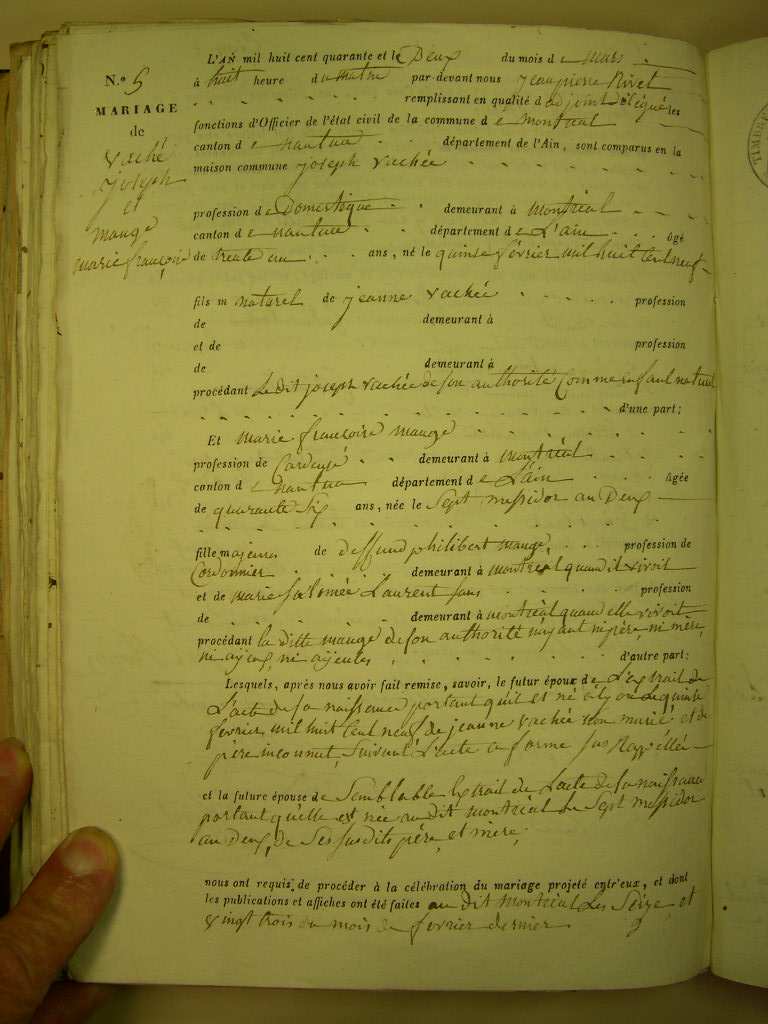 L'AN mil huit cent quarante et le Deux du mois de mars
N.º 5
à huit heure du matin par-devant nous jean pierre Rivet
MARIAGE
remplissant en qualité d'adjoint délégué les
fonctions d'Officier de l'état civil de la commune de montréal
de
canton de nantua département de l'Ain, sont comparus en la
maison commune joseph vachée
vaché
joseph
et
mauge
marie françoise
profession de Domestique demeurant à montréal
canton de nantua département de L'ain âgé
de trente un ans, né le quinse février mil huit cent neuf
fils m naturel de jeanne vachée profession
de demeurant à
et de profession
de demeurant à
procédant Le dit joseph vachée de son authorité Comme enfant naturel
d'une part;
Et marie françoise mauge
profession de Cardeuse demeurant à montréal
canton de nantua département de L'ain âgée
de quarante six ans, née le sept messidor an Deux
fille majeure de deffund philibert mauge, profession de
Cordonnier demeurant à montréal quand il vivoit
et de marie salomée Laurent sans profession
de demeurant à montréal quand elle vivoit
procédant la ditte mauge de son authorité n'ayant ni père, ni mère,
ni ayeux, ni ayeules, d'autre part:
Lesquels, après nous avoir fait remise, savoir, le futur époux de L'extrait de
L'acte de sa naissance portant qu'il est né à le quinse
février mil huit cent neuf de jeanne vachée non mariée et de
père inconnut, suivant L'acte en forme sus Rappellée
et la future épouse de semblable Extrait de L'acte de sa naissance
portant qu'elle est née au dit montréal le sept messidor
an deux, de ses susdits père et mère,
nous ont requis de procéder à la célébration du mariage projeté entr'eux, et dont
les publications et affiches ont été faites au dit montréal Les Seize et
vingt trois du mois de fevrier dernier
TIMBRE